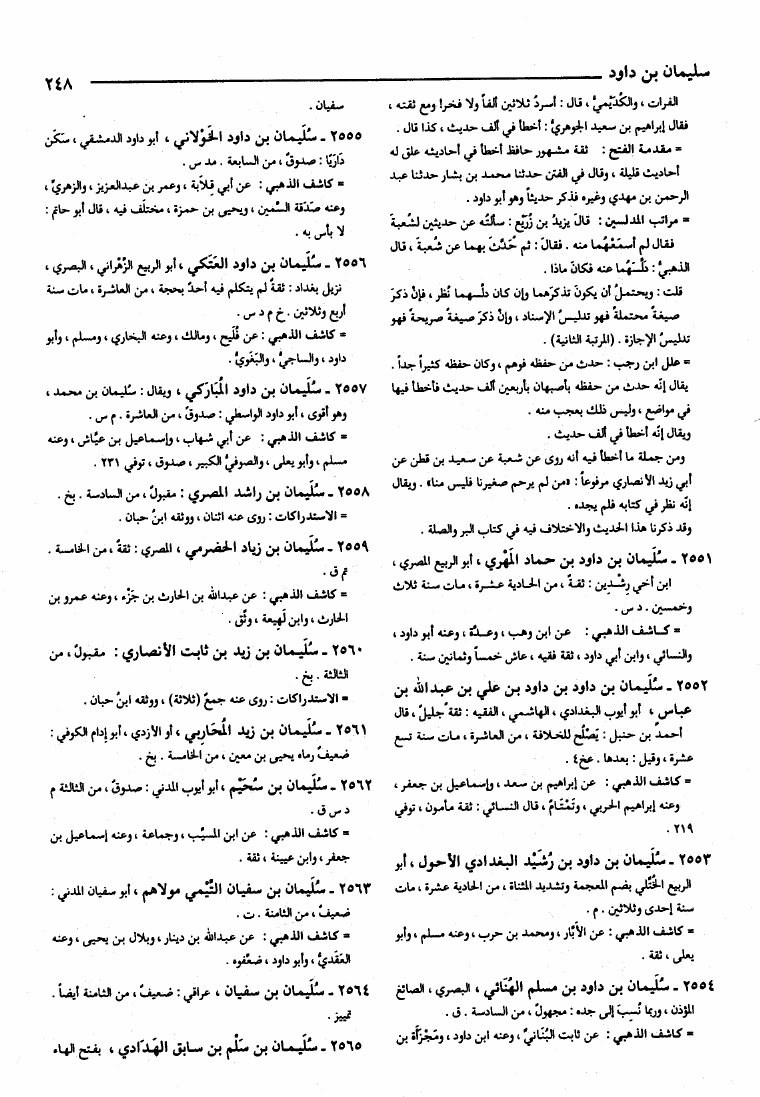 سليمان بن داود
٢٤٨
الفرات ، والكُدَيْميُّ ، قال : أسردُ ثلاثين ألفاً ولا فخر! ومع ثقته ،
فقال إبراهيم بن سعيد الجوهريُّ : أخطأ في ألف حديث ، كذا قال .
= مقدمة الفتح : ثقة مشهور حافظ أخطأ في أحاديثه علق له
أحاديث قليلة ، وقال في الفتن حدثنا محمد بن بشار حدثنا عبد
الرحمن بن مهدي وغيره فذكر حديثاً وهو أبو داود .
= مراتب المدلسين : قالَ يزيدُ بن زُرَيْع : سألتُه عن حديثين لشُعبةَ
فقال لم أسمَعْهُما منه . فقالَ : ثم حُدِّثَ بهما عن شُعبةَ ، قال
الذهبيُّ : دلَّسَهُما عنه فكانَ ماذا .
قلت : ويحتملُ أن يكونَ تذكرَهما وإن كان دلسهما نُظر ، فإن ذكرَ
صيغةً محتملةً فهو تدليسُ الإسناد ، وإنْ ذكرَ صيغةً صريحةً فهو
تدليسُ الإجازة . (المرتبة الثانية) .
= علل ابن رجب : حدث من حفظه فوهم ، وكان حفظه كثيراً جداً .
يقال إنّه حدث من حفظه بأصبهان بأربعين ألف حديث فأخطأ فيها
في مواضع ، وليس ذلك بعجب منه .
ويقال إنّه أخطأ في ألف حديث .
ومن جملة ما أخطأ فيه أنه روى عن شعبة عن سعيد بن قطن عن
أبي زيد الأنصاري مرفوعاً : «من لم يرحم صغيرنا فليس منا» . ويقال
إنّه نظر في كتابه فلم يجده .
وقد ذكرنا هذا الحديث والاختلاف فيه في كتاب البر والصلة .
٢٥٥١ ـ سُلَيمان بن داود بن حماد المَهْري ، أبو الربيع المصري ،
ابن أخي رِشْدِين : ثقةٌ ، من الحادية عشرة ، مات سنة ثلاث
وخمسين . د س .
= كاشف الذهبي : عن ابن وهب ، وعدَّة ، وعنه أبو داود ،
والنسائي ، وابن أبي داود ، ثقة فقيه ، عاش خمساً وثمانين سنة .
٢٥٥٢ ـ سُلَيمان بن داود بن داود بن علي بن عبد الله بن
عباس ، أبو أيوب البغدادي ، الهاشمي ، الفقيه : ثقةٌ جليلٌ ، قال
أحمدُ بن حنبل : يَصْلُح للخلافة ، من العاشرة ، مات سنة تسع
عشرة ، وقيل : بعدها . عخ٤ .
= كاشف الذهبي : عن إبراهيم بن سعد ، وإسماعيل بن جعفر ،
وعنه إبراهيم الحربي ، وتَمْتَامٌ ، قال النسائي : ثقة مأمون ، توفي
٢١٩ .
٢٥٥٣ ـ سُلَيمان بن داود بن رُشَيْد البغدادي الأحول ، أبو
الربيع الخُتَّلي بضم المعجمة وتشديد المثناة ، من الحادية عشرة ، مات
سنة إحدى وثلاثين . م .
= كاشف الذهبي : عن الأبَّار ، ومحمد بن حرب ، وعنه مسلم ، وأبو
يعلى ، ثقة .
٢٥٥٤ ـ سُلَيمان بن داود بن مسلم الهُنَائي ، البصري ، الصائغ
المؤذن ، وربما نُسِبَ إلى جده : مجهولٌ ، من السادسة . ق .
= كاشف الذهبي : عن ثابت البُنَانيِّ ، وعنه ابن داود ، ومَجْزَأَة بن
سفيان .
٢٥٥٥ ـ سُلَيمان بن داود الخَوْلاني ، أبو داود الدمشقي ، سَكَن
دَارَيَّا : صدوقٌ ، من السابعة . مد س .
= كاشف الذهبي : عن أبي قِلَابة ، وعمر بن عبدالعزيز ، والزهريِّ ،
وعنه صَدَقة السَّمين ، ويحيى بن حمزة ، مختلَف فيه ، قال أبو حاتم :
لا بأس به .
٢٥٥٦ ـ سُلَيمان بن داود العَتَكي ، أبو الربيع الزَّهْراني ، البصري ،
نزيل بغداد : ثقةٌ لم يتكلم فيه أحدٌ بحجة ، من العاشرة ، مات سنة
أربع وثلاثين . خ م د س .
= كاشف الذهبي : عن فُلَيح ، ومالك ، وعنه البخاري ، ومسلم ، وأبو
داود ، والساجيُّ ، والبَغَويُّ .
٢٥٥٧ ـ سُلَيمان بن داود المُبَاركي ، ويقال : سُليمان بن محمد ،
وهو أقوى ، أبو داود الواسطي : صدوقٌ ، من العاشرة . م س .
= كاشف الذهبي : عن أبي شهاب ، وإسماعيل بن عيَّاش ، وعنه
مسلم ، وأبو يعلى ، والصوفيُّ الكبير ، صدوق ، توفي ٢٣١ .
٢٥٥٨ ـ سُلَيمان بن راشد المصري : مقبولٌ ، من السادسة . بخ .
= الاستدراكات : روى عنه اثنان ، ووثقه ابنُ حبان .
٢٥٥٩ ـ سُلَيمان بن زياد الحضرمي ، المصري : ثقةٌ ، من الخامسة .
تم ق .
= كاشف الذهبي : عن عبدالله بن الحارث بن جَزْء ، وعنه عمرو بن
الحارث ، وابن لَهِيعة ، وثِّق .
٢٥٦٠ ـ سُلَيمان بن زيد بن ثابت الأنصاري : مقبولٌ ، من
الثالثة . بخ .
= الاستدراكات : روى عنه جمعٌ (ثلاثة) ، ووثقه ابنُ حبان .
٢٥٦١ ـ سُلَيمان بن زيد المُحَاربي ، أو الأزدي ، أبو إدام الكوفي :
ضعيفٌ رماه يحيى بن معين ، من الخامسة . بخ .
٢٥٦٢ ـ سُلَيمان بن سُحَيْم ، أبو أيوب المدني : صدوقٌ ، من الثالثة م
د س ق .
= كاشف الذهبي : عن ابن المسيَّب ، وجماعة ، وعنه إسماعيل بن
جعفر ، وابن عيينة ، ثقة .
٢٥٦٣ ـ سُلَيمان بن سفيان التَّيْمي مولاهم ، أبو سفيان المدني :
ضعيفٌ ، من الثامنة . ت .
= كاشف الذهبي : عن عبدالله بن دينار ، وبلال بن يحيى ، وعنه
العَقَديُّ ، وأبو داود ، ضعَّفوه .
٢٥٦٤ ـ سُلَيمان بن سفيان ، عراقي : ضعيفٌ ، من الثامنة أيضاً .
تمييز .
٢٥٦٥ ـ سُلَيمان بن سَلْم بن سابق الهَدَادي ، بفتح الهاء